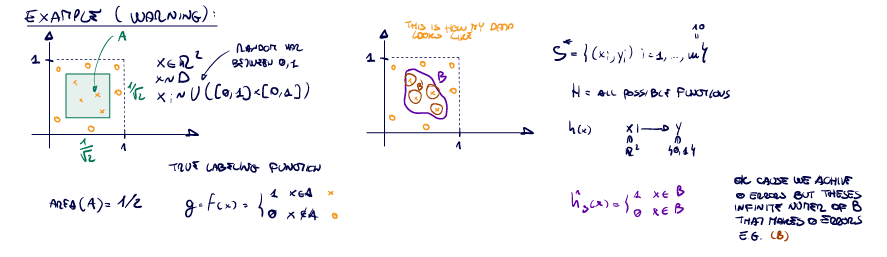 EXAMPLE ( WARNING):
A
1
1/√2
1/√2
1
x∈ℝ²
x∼D
x i ∼ U([0,1]×[0,1])
RANDOM VAR
BETWEEN 0,1
TRUE LABELING FUNCTION
AREA(A) = 1/2
g = f(x) = { 1 x∈A ×
0 x∉A o
THIS IS HOW MY DATA
LOOKS LIKE
1
B
1
10
S* = {(xi, yi) i=1,...,m}
H = ALL POSSIBLE FUNCTIONS
h(x) x ↦ y
ℝ² {0,1}
ĥs(x) = { 1 x∈B
0 x∈B
OK CAUSE WE ACHIVE
0 ERRORS BUT THESES
INFINITE NUMER OF B
THAT MAKES 0 ERRORS
E.G. (B)